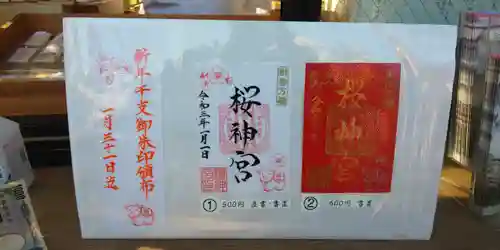 新年干支御朱印頒布
一月三十一日迄
桜神宮
令和三年一月一日
桜神宮
① 500円 直書・書置
② 600円 書置